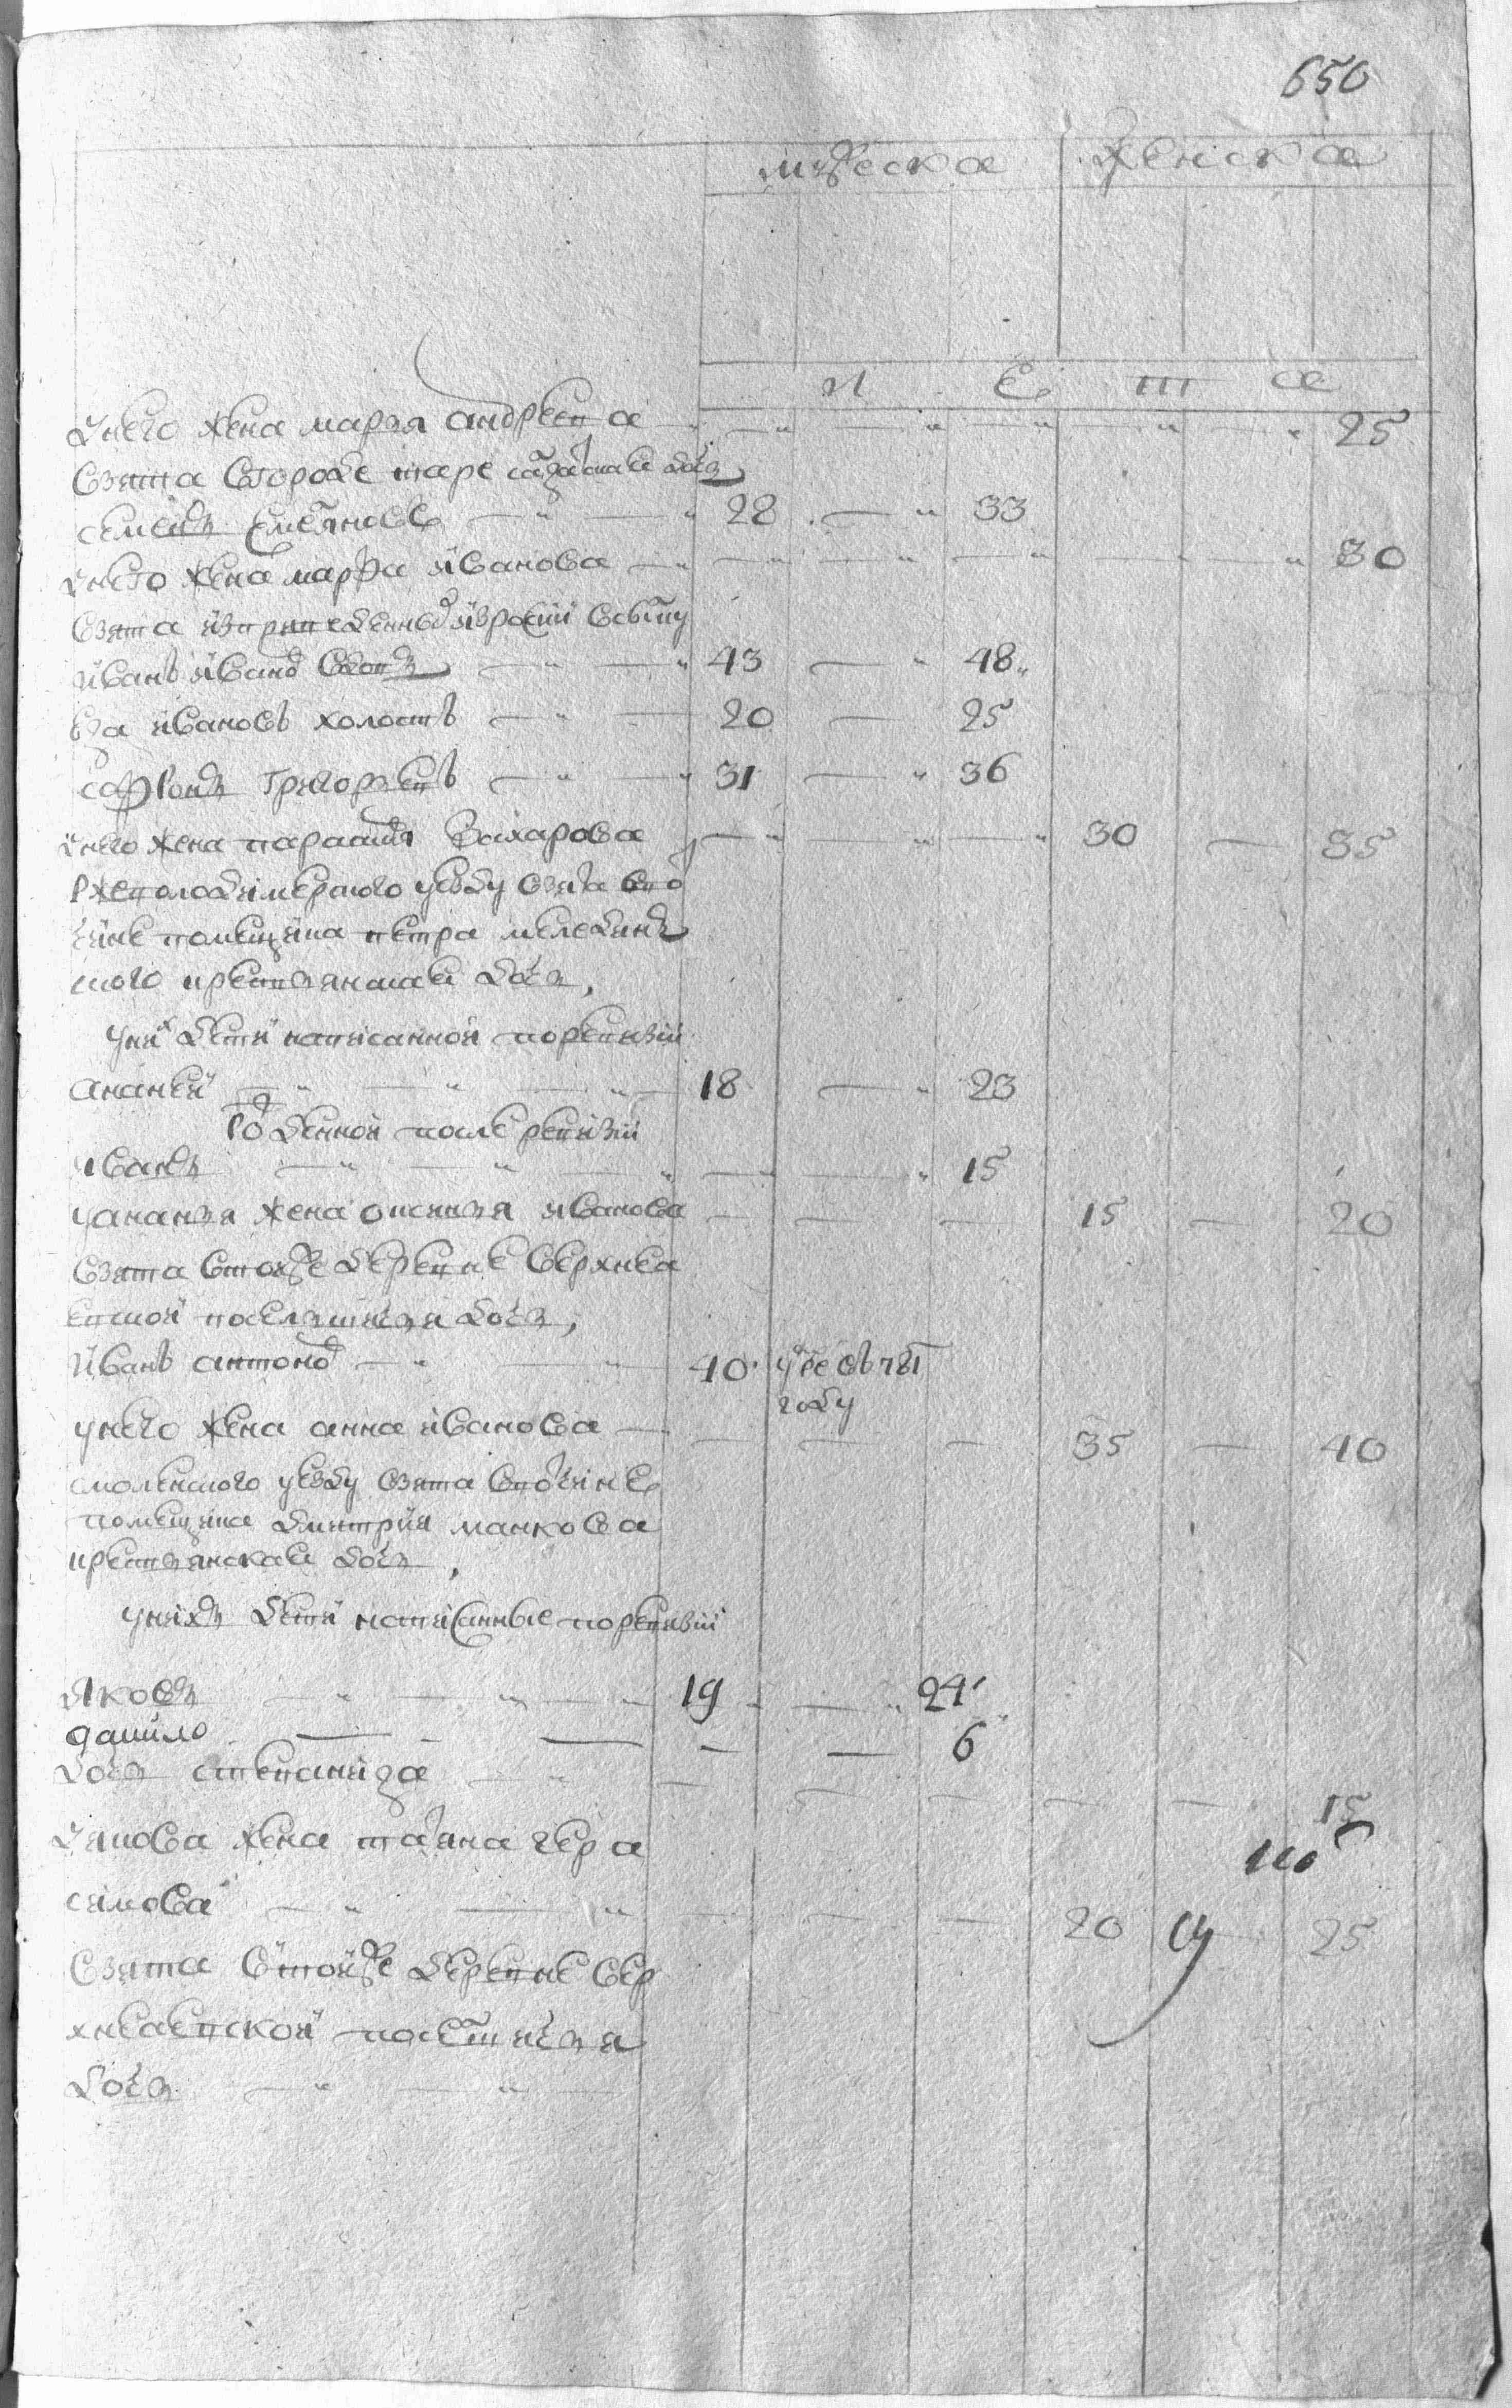 650
мужеска женска
л е т а
у него жена марья андреева 25
взята в городе таре салдатская дочь
семенъ емельяновъ 28 33
у него жена марфа иванова 30
взята из приведенных из росии
иванъ иванов 43 48
иванов холостъ 20 25
сафронъ григорьевъ 31 36
у него жена парасковья захарова 30 35
ржеволодимерского уезду взята в вот
чине помещика петра
ского крестьянская дочь,
у них дети написанной по ревизии
ананей 18 23
рожденной после ревизии
иванъ 15
у ананья жена оксинья иванова 15 20
взята в той же деревне верхнеа
евской поселщичья дочь,
иванъ антонов 40 умре въ 781
году
у него жена анна иванова 35 40
смоленского уезду взята в вотчине
помещика дмитрия манкова
крестьянская дочь,
у нихъ дети написанные по ревизии
яковъ 19 24
данило 6
дочь степанида 15
у якова жена татьяна гера
симова 20 25
взята в той же деревне вер
хнеаевской поселщичья
дочь